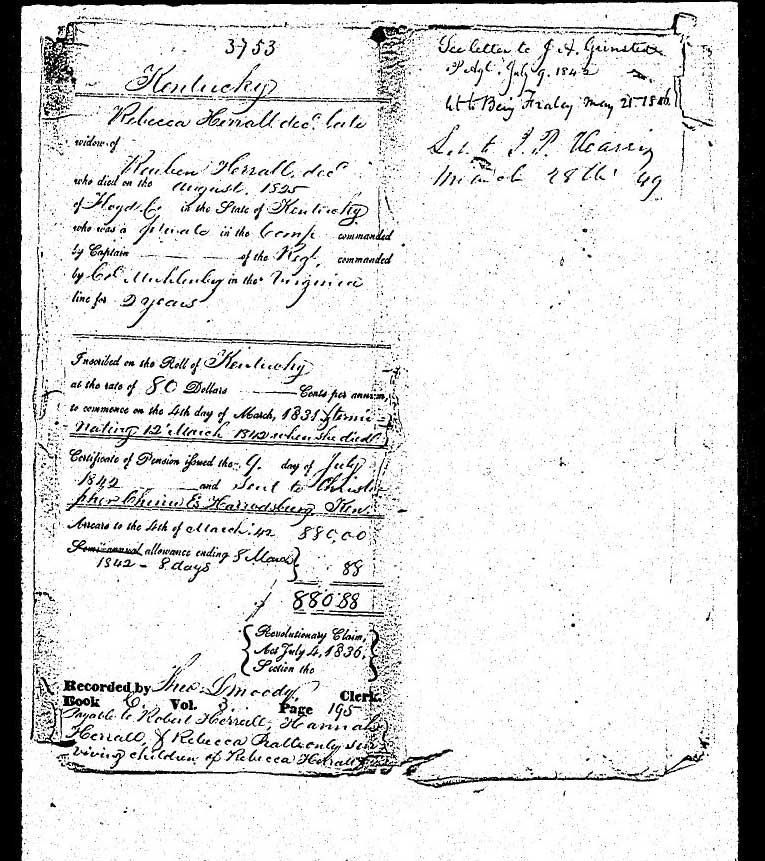 3753
Kentucky
Rebecca Herrall dec.d late
widow of
Reuben Herrall, dec.d
who died on the August, 1825
of Floyd Co. in the State of Kentucky
who was a private in the Comp. commanded
by Captain of the Regt. commanded
by Col Muhlenberg in the Virginia
line for 2 years
Inscribed on the Roll of Kentucky
at the rate of 80 Dollars Cents per annum,
to commence on the 4th day of March, 1831 & termi-
nating 12 March 1842 when she died.
Certificate of Pension issued the 9 day of July
1842 and sent to Christo-
pher Esq Harrodsburg Ken.
Arrears to the 4th of March '42 880.00
Semi-annual allowance ending 8 March
1842 - 8 days 88
880.88
Revolutionary Claim,
Act July 4, 1836,
Section the
Recorded by Clerk.
Book Vol. Page 195
Payable to Robert Herrall, Hannah
Herrall, & Rebecca only sur-
viving children of Rebecca Herrall
See letter to J. A. Grinstead
P. Agt. July 9. 1842
let to Benj Fraley May 21 1846.
Let to J. P.
March 28th 49